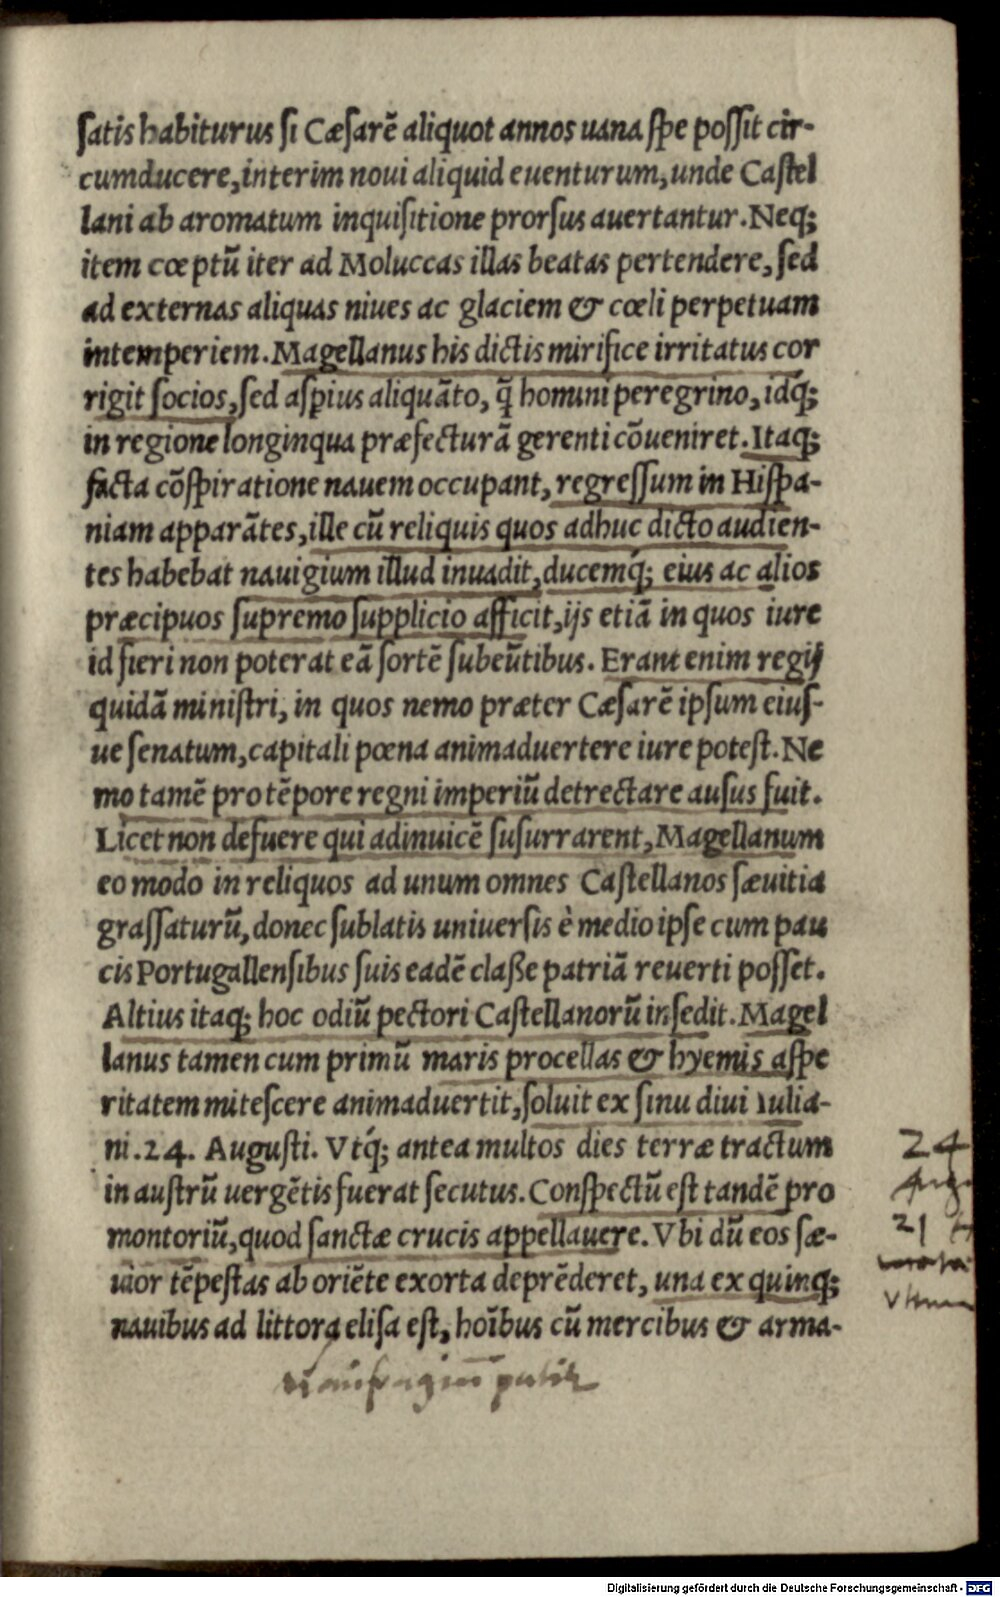 ſatis habiturus ſi Cæſarẽ aliquot annos uana ſpe poſſit cir-
cumducere, interim noui aliquid euenturum, unde Caſtel
lani ab aromatum inquiſitione prorſus auertantur. Neq;
item cœptũ iter ad Moluccas illas beatas pertendere, ſed
ad externas aliquas niues ac glaciem & cœli perpetuam
intemperiem. Magellanus his dictis mirifice irritatus cor
rigit ſocios, ſed aſpius aliquãto, q̃ homini peregrino, idq́;
in regione longinqua præfecturã gerenti cõueniret. Itaq;
facta cõſpiratione nauem occupant, regreſſum in Hiſpa-
niam apparãtes, ille cũ reliquis quos adhuc dicto audien-
tes habebat nauigium illud inuadit, ducemq́; eius ac alios
præcipuos ſupremo ſupplicio afficit, ijs etiã in quos iure
id fieri non poterat eã ſortẽ ſubeũtibus. Erant enim regij
quidã miniſtri, in quos nemo præter Cæſarẽ ipſum eiuſ-
ue ſenatum, capitali pœna animaduertere iure poteſt. Ne
mo tamẽ pro tẽpore regni imperiũ detrectare auſus fuit.
Licet non defuere qui adinuicẽ ſuſurrarent, Magellanum
eo modo in reliquos ad unum omnes Caſtellanos ſæuitia
graſſaturũ, donec ſublatis uniuerſis è medio ipſe cum pau
cis Portugallenſibus ſuis eadẽ claße patriã reuerti poſſet.
Altius itaq; hoc odiũ pectori Caſtellanorũ inſedit. Magel
lanus tamen cum primũ maris procellas & hyemis aſpe
ritatem miteſcere animaduertit, ſoluit ex ſinu diui Iulia-
ni. 24. Auguſti. Vtq́; antea multos dies terræ tractum
in auſtrũ uergẽtis fuerat ſecutus. Conſpectũ eſt tandẽ pro
montoriũ, quod ſanctæ crucis appellauere. Vbi dũ eos ſæ-
uior tẽpeſtas ab oriẽte exorta deprẽderet, una ex quinq;
nauibus ad littora eliſa eſt, hoĩbus cũ mercibus & arma-
24
21
naufragiũ
Digitalisierung gefördert durch die Deutsche Forschungsgemeinschaft - DFG